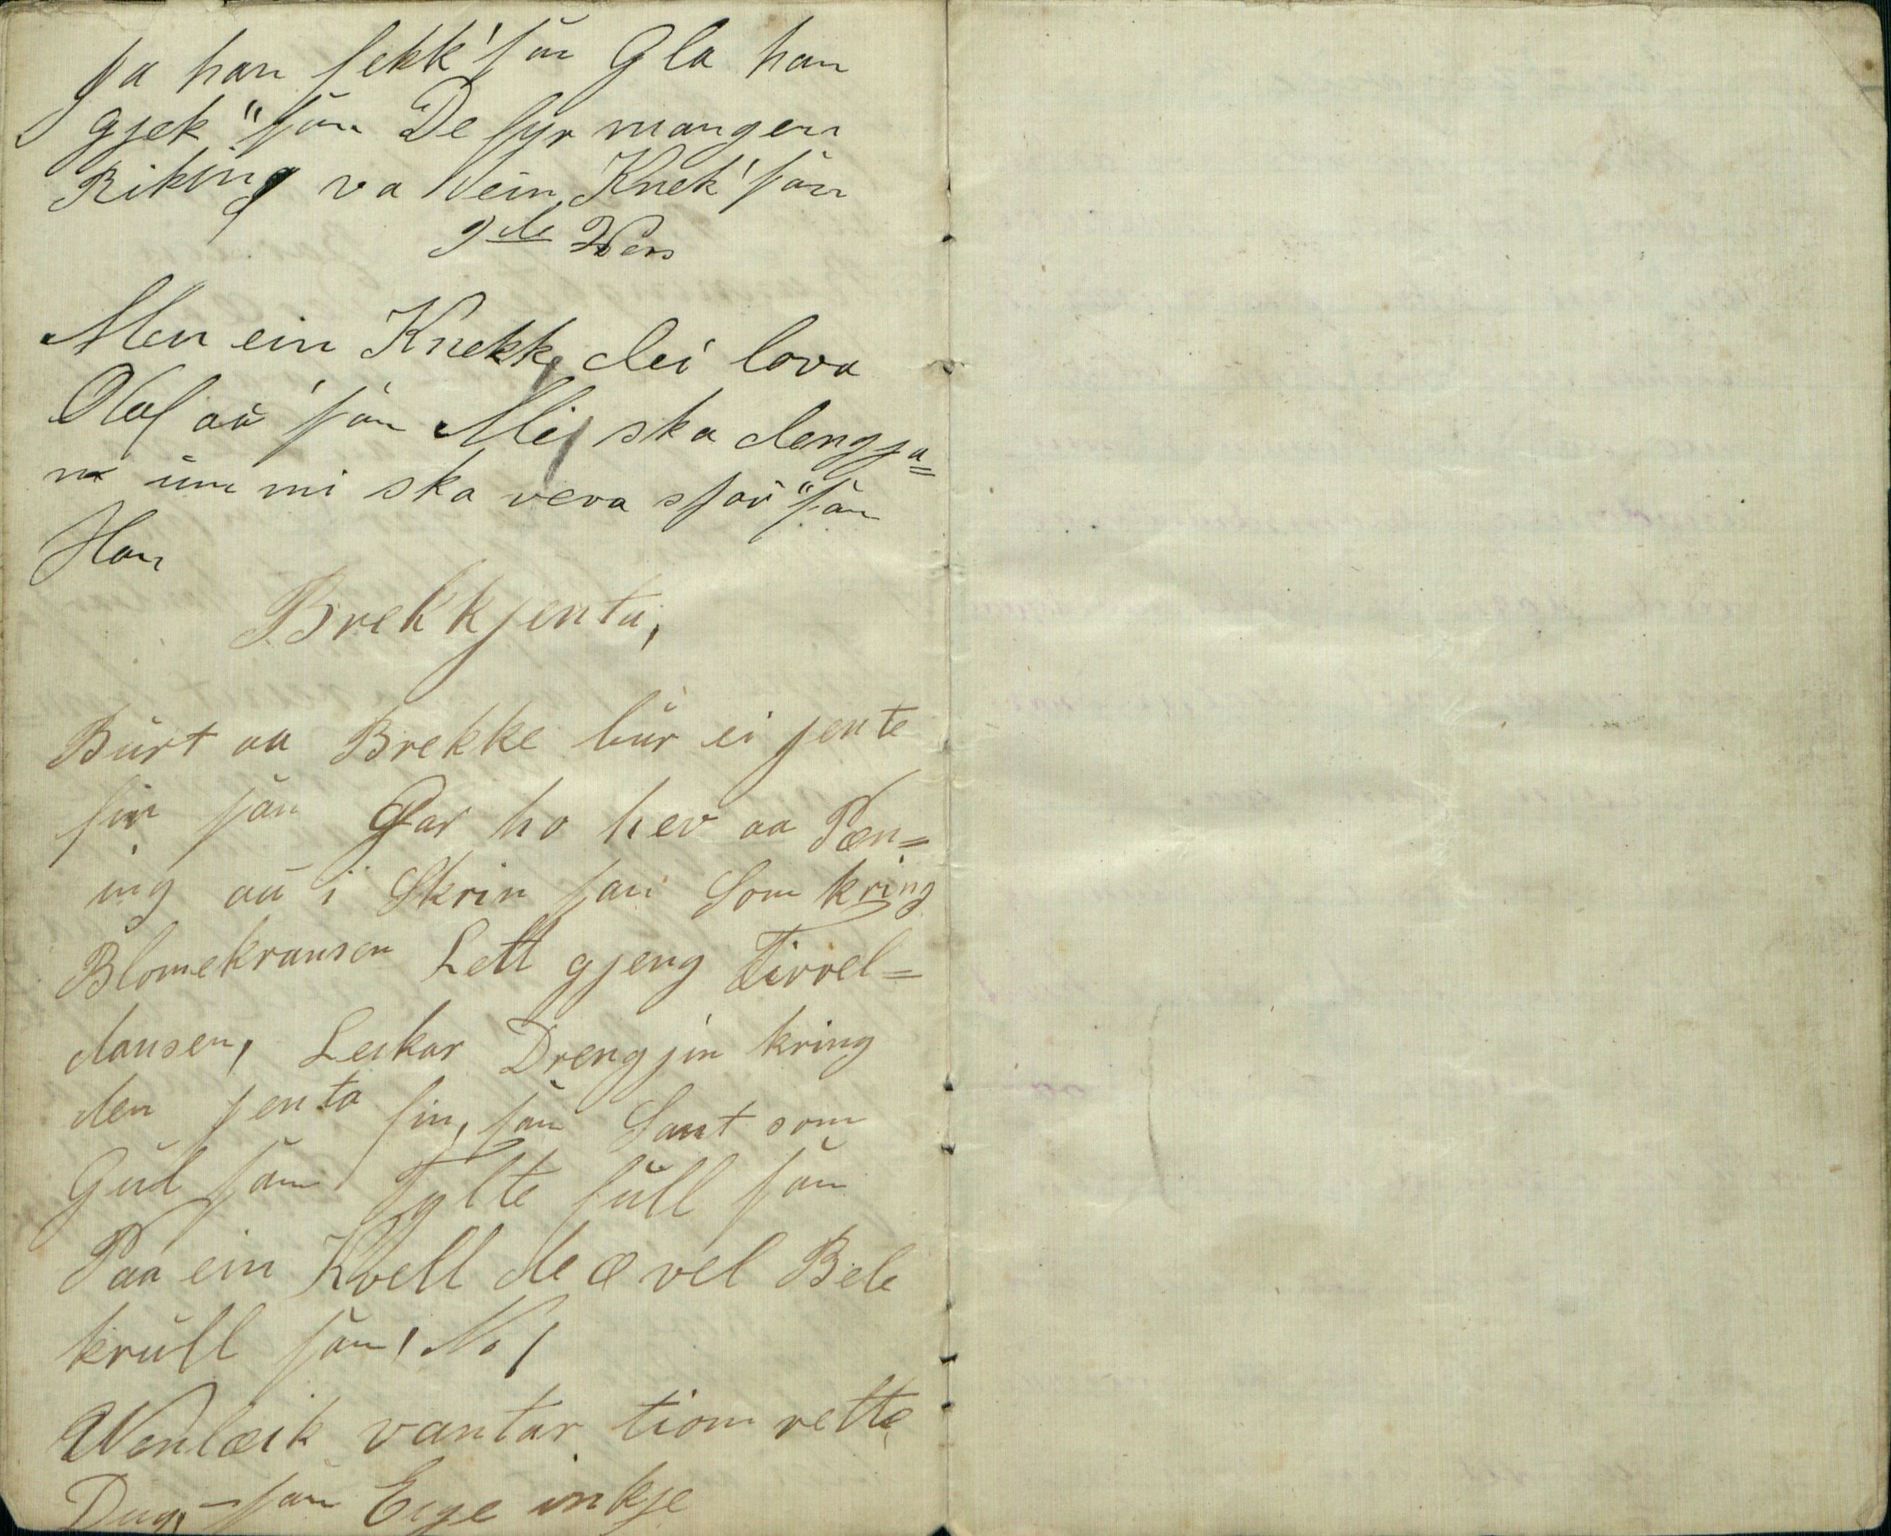 Ja han fekk' sån Gla han
gjek" sån De fyr mangein
Riking va Vein Knek' sån
9de Vers
Men ein Knekk dei lova
Olaf aü' sån Mei ska dengja=
n üm mi ska vera sjav" sån
Han
Brekkjenta,
Bürt aa Brekke bür ei jente
fin sån Gar ho hev aa Pæn=
ing aü i Skrin sån Som kring
Blomekransen Lett gjeng Tivvel=
dansen, Leikar Drengjin kring
den jenta fin, sån Sant som
Gül sån Tylte füll sån
Paa ein Kvell de æ vel Bele
krüll sån! No!
Wenlæik vantar tiom rette
Dug, sån Eige inkje